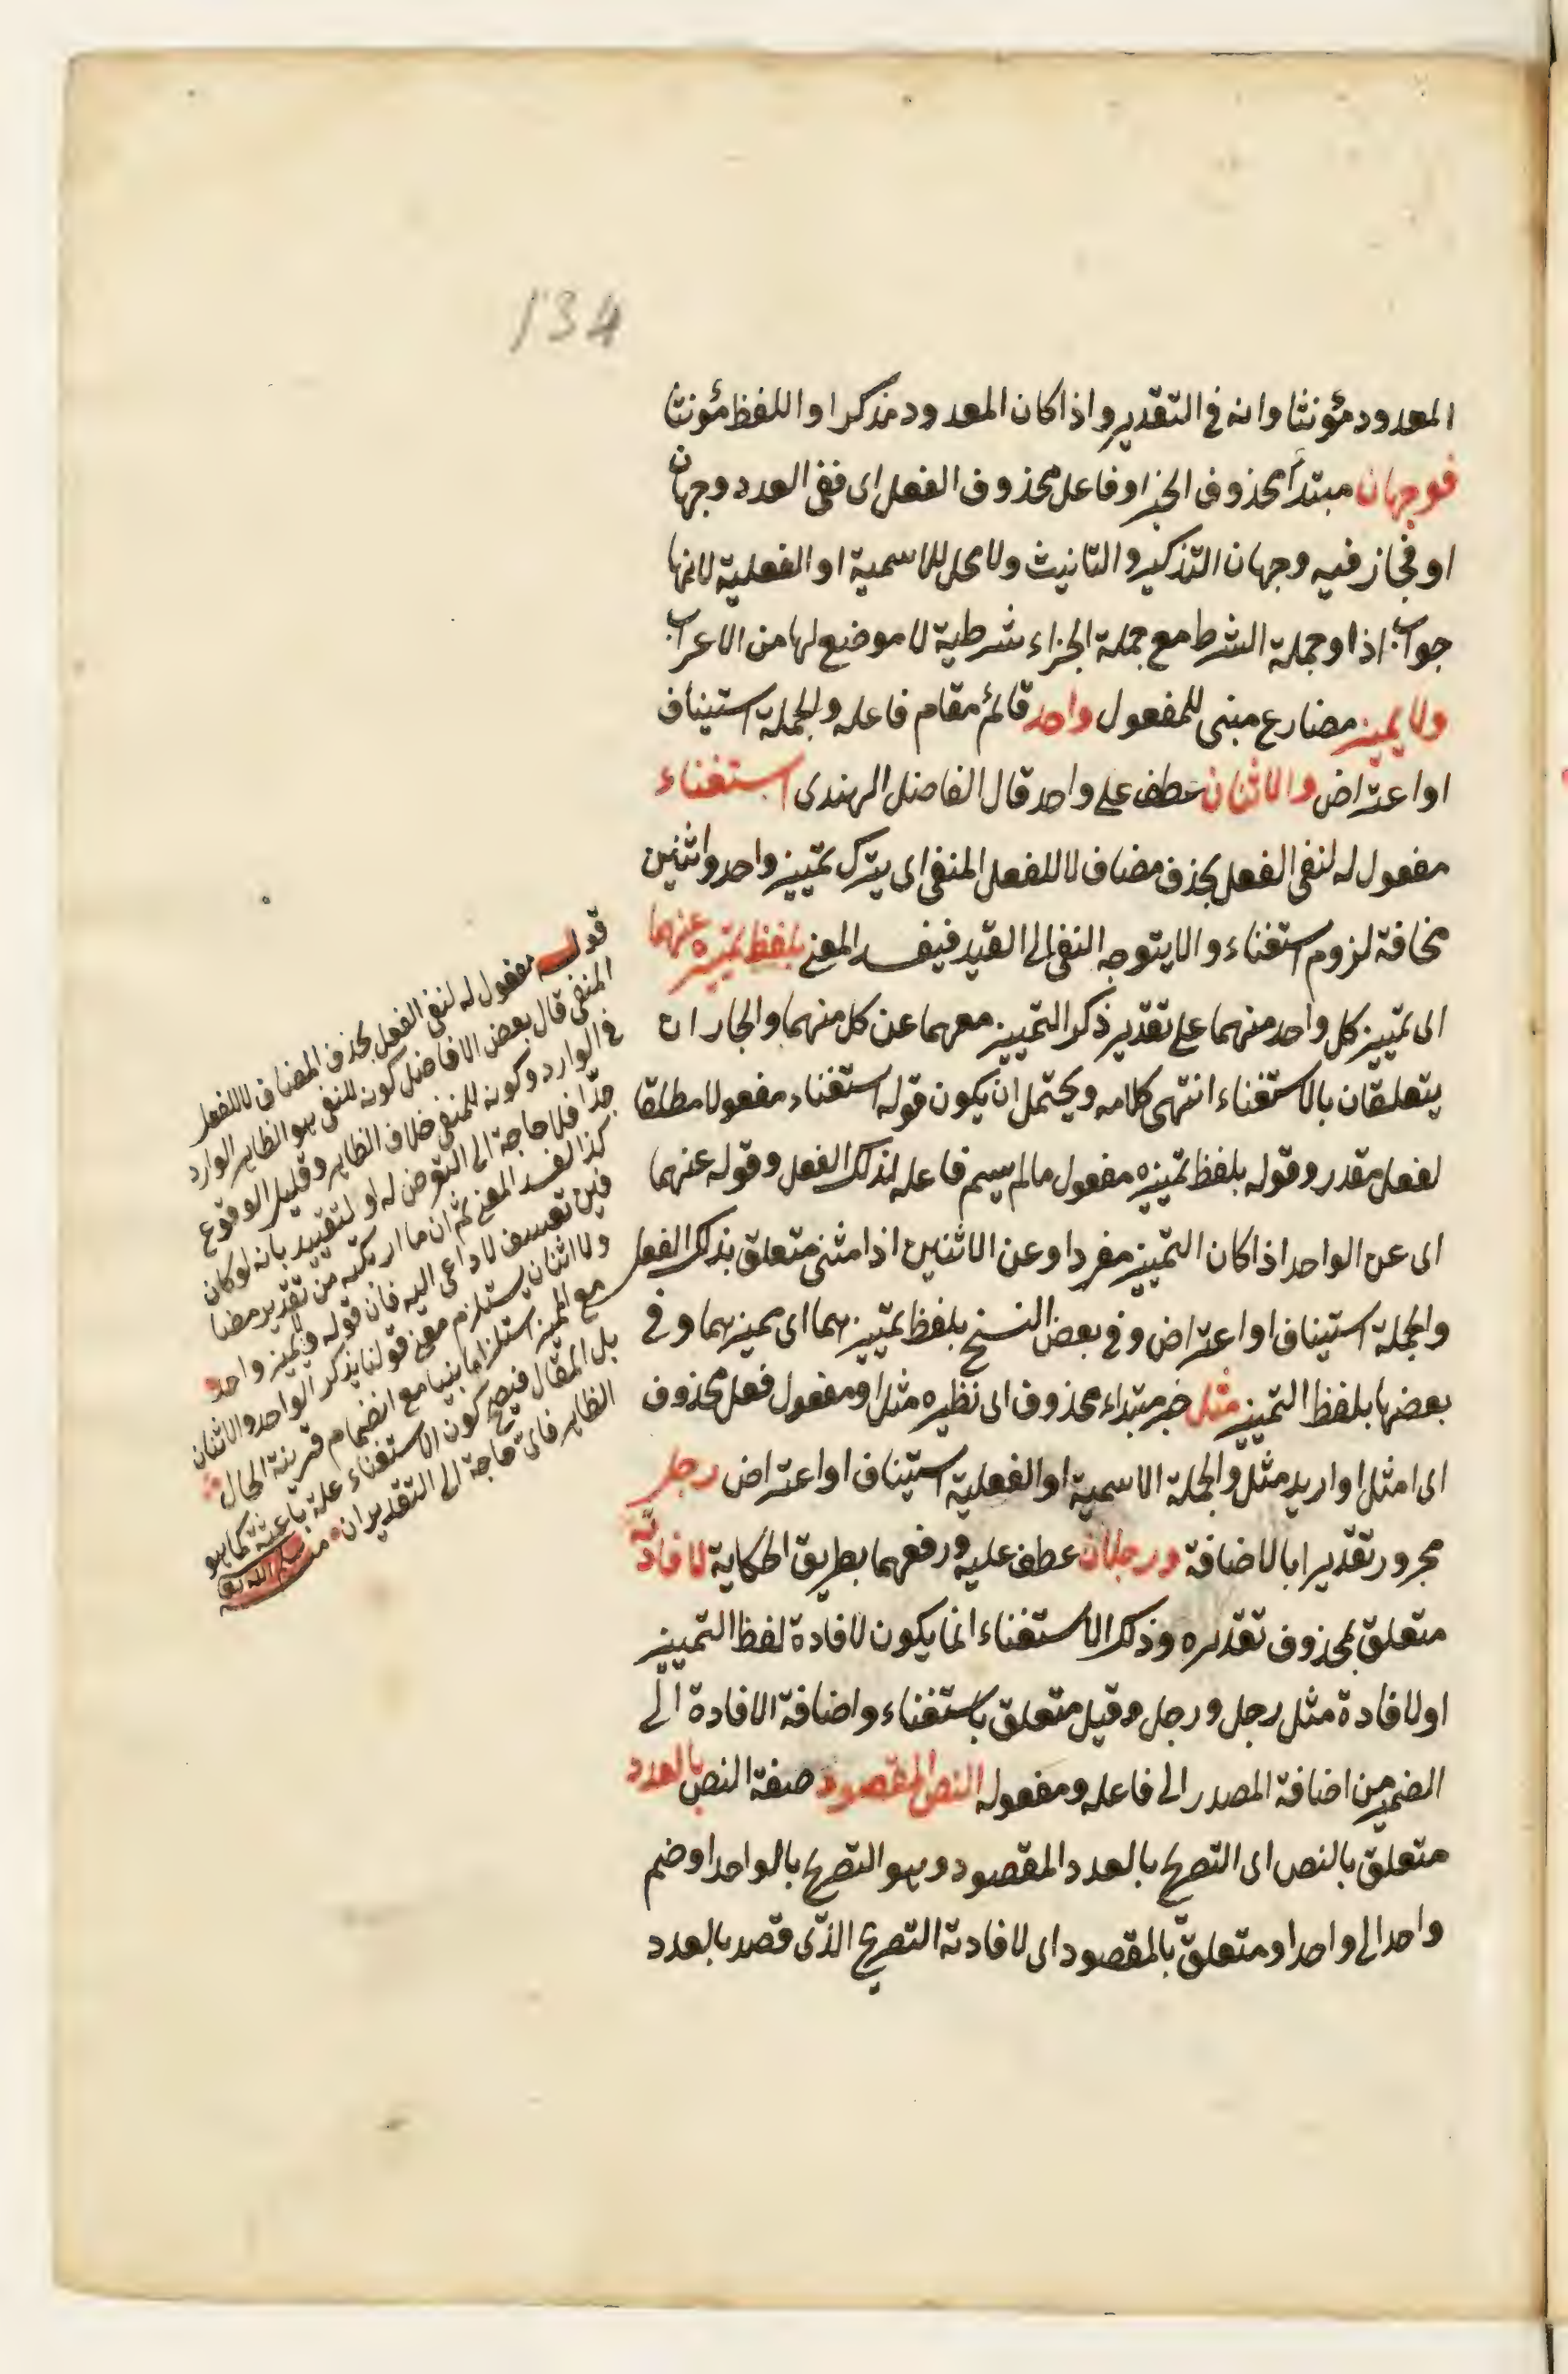 134
المعدود مؤنثا وانه في التقدير واذا كان المعدود مذكرا واللفظ مؤنثا
فوجهان مبتدأ محذوف الخبر او فاعل محذوف الفعل اى ففى العدد وجهان
او فجاز فيه وجهان التذكير والتانيث ولا محل للاسمية او الفعلية لانها
جواب اذا وجملة الشرط مع جملة الجزاء شرطية لا موضع لها من الاعراب
ولا يميز مضارع مبنى للمفعول واحد قائم مقام فاعله والجملة استيناف
او اعتراض والاثنان عطف على واحد قال الفاضل الهندى استغناء
مفعول له لنفى الفعل بحذف مضاف لا للفعل المنفى اى يترك تمييز واحد واثنين
مخافة لزوم استغناء والا يتوجه النفى الى القيد فيفسد المعنى بلفظ تمييزه عنهما
اى تمييز كل واحد منهما على تقدير ذكر التمييز معهما عن كل منهما والجاران
يتعلقان بالاستغناء انتهى كلامه ويحتمل ان يكون قوله استغناء مفعولا مطلقا
لفعل مقدر وقوله بلفظ تمييزه مفعول ما لم يسم فاعله لذلك الفعل وقوله عنهما
اى عن الواحد اذا كان التمييز مفردا وعن الاثنين اذا مثنى متعلق بذلك الفعل
والجملة استيناف او اعتراض وفى بعض النسخ بلفظ تمييزهما اى مميزهما وفى
بعضها بلفظ التمييز مثل خبر مبتداء محذوف اى نظيره مثل او مفعول فعل محذوف
اى امثل او اريد مثل والجملة الاسمية او الفعلية استيناف او اعتراض رجل
مجرور تقديرا بالاضافة ورجلان عطف عليه ورفعهما بطريق الحكاية لافادته
متعلق بمحذوف تقديره وذلك الاستغناء انما يكون لافادة لفظ التمييز
او لافادة مثل رجل ورجل وقيل متعلق باستغناء واضافة الافادة الى
الضمير من اضافة المصدر الى فاعله ومفعوله النص المقصود صفة النص بالعدد
متعلق بالنص اى التصريح بالعدد المقصود وهو التصريح بالواحد او ضم
واحد الى واحد او متعلق بالمقصود اى لافادته التصريح الذى قصد بالعدد
قوله مفعول له لنفى الفعل بحذف المضاف لا للفعل
المنفى قال بعض الافاضل كونه للنفى هو الظاهر الوارد
فى الوارد وكونه للمنفى خلاف الظاهر وقليل الوقوع
جدّا فلا حاجة الى التعرض له او لتقييد بانه لو كان
كذا لفسد المعنى ثم ان ما ارتكبه من تقدير مضا
فين تعسف لا داعى اليه فان قوله ولا يميز واحد
ولا اثنان يستلزم معنى قولنا يذكر الواحد والاثنان
مع المميز استلزاما بينا مع انضمام قرينة الحال
بل المقال فيصح كون الاستغناء علة باعثة كما هو
الظاهر فاى حاجة الى التقديران منه سلمه الله تع